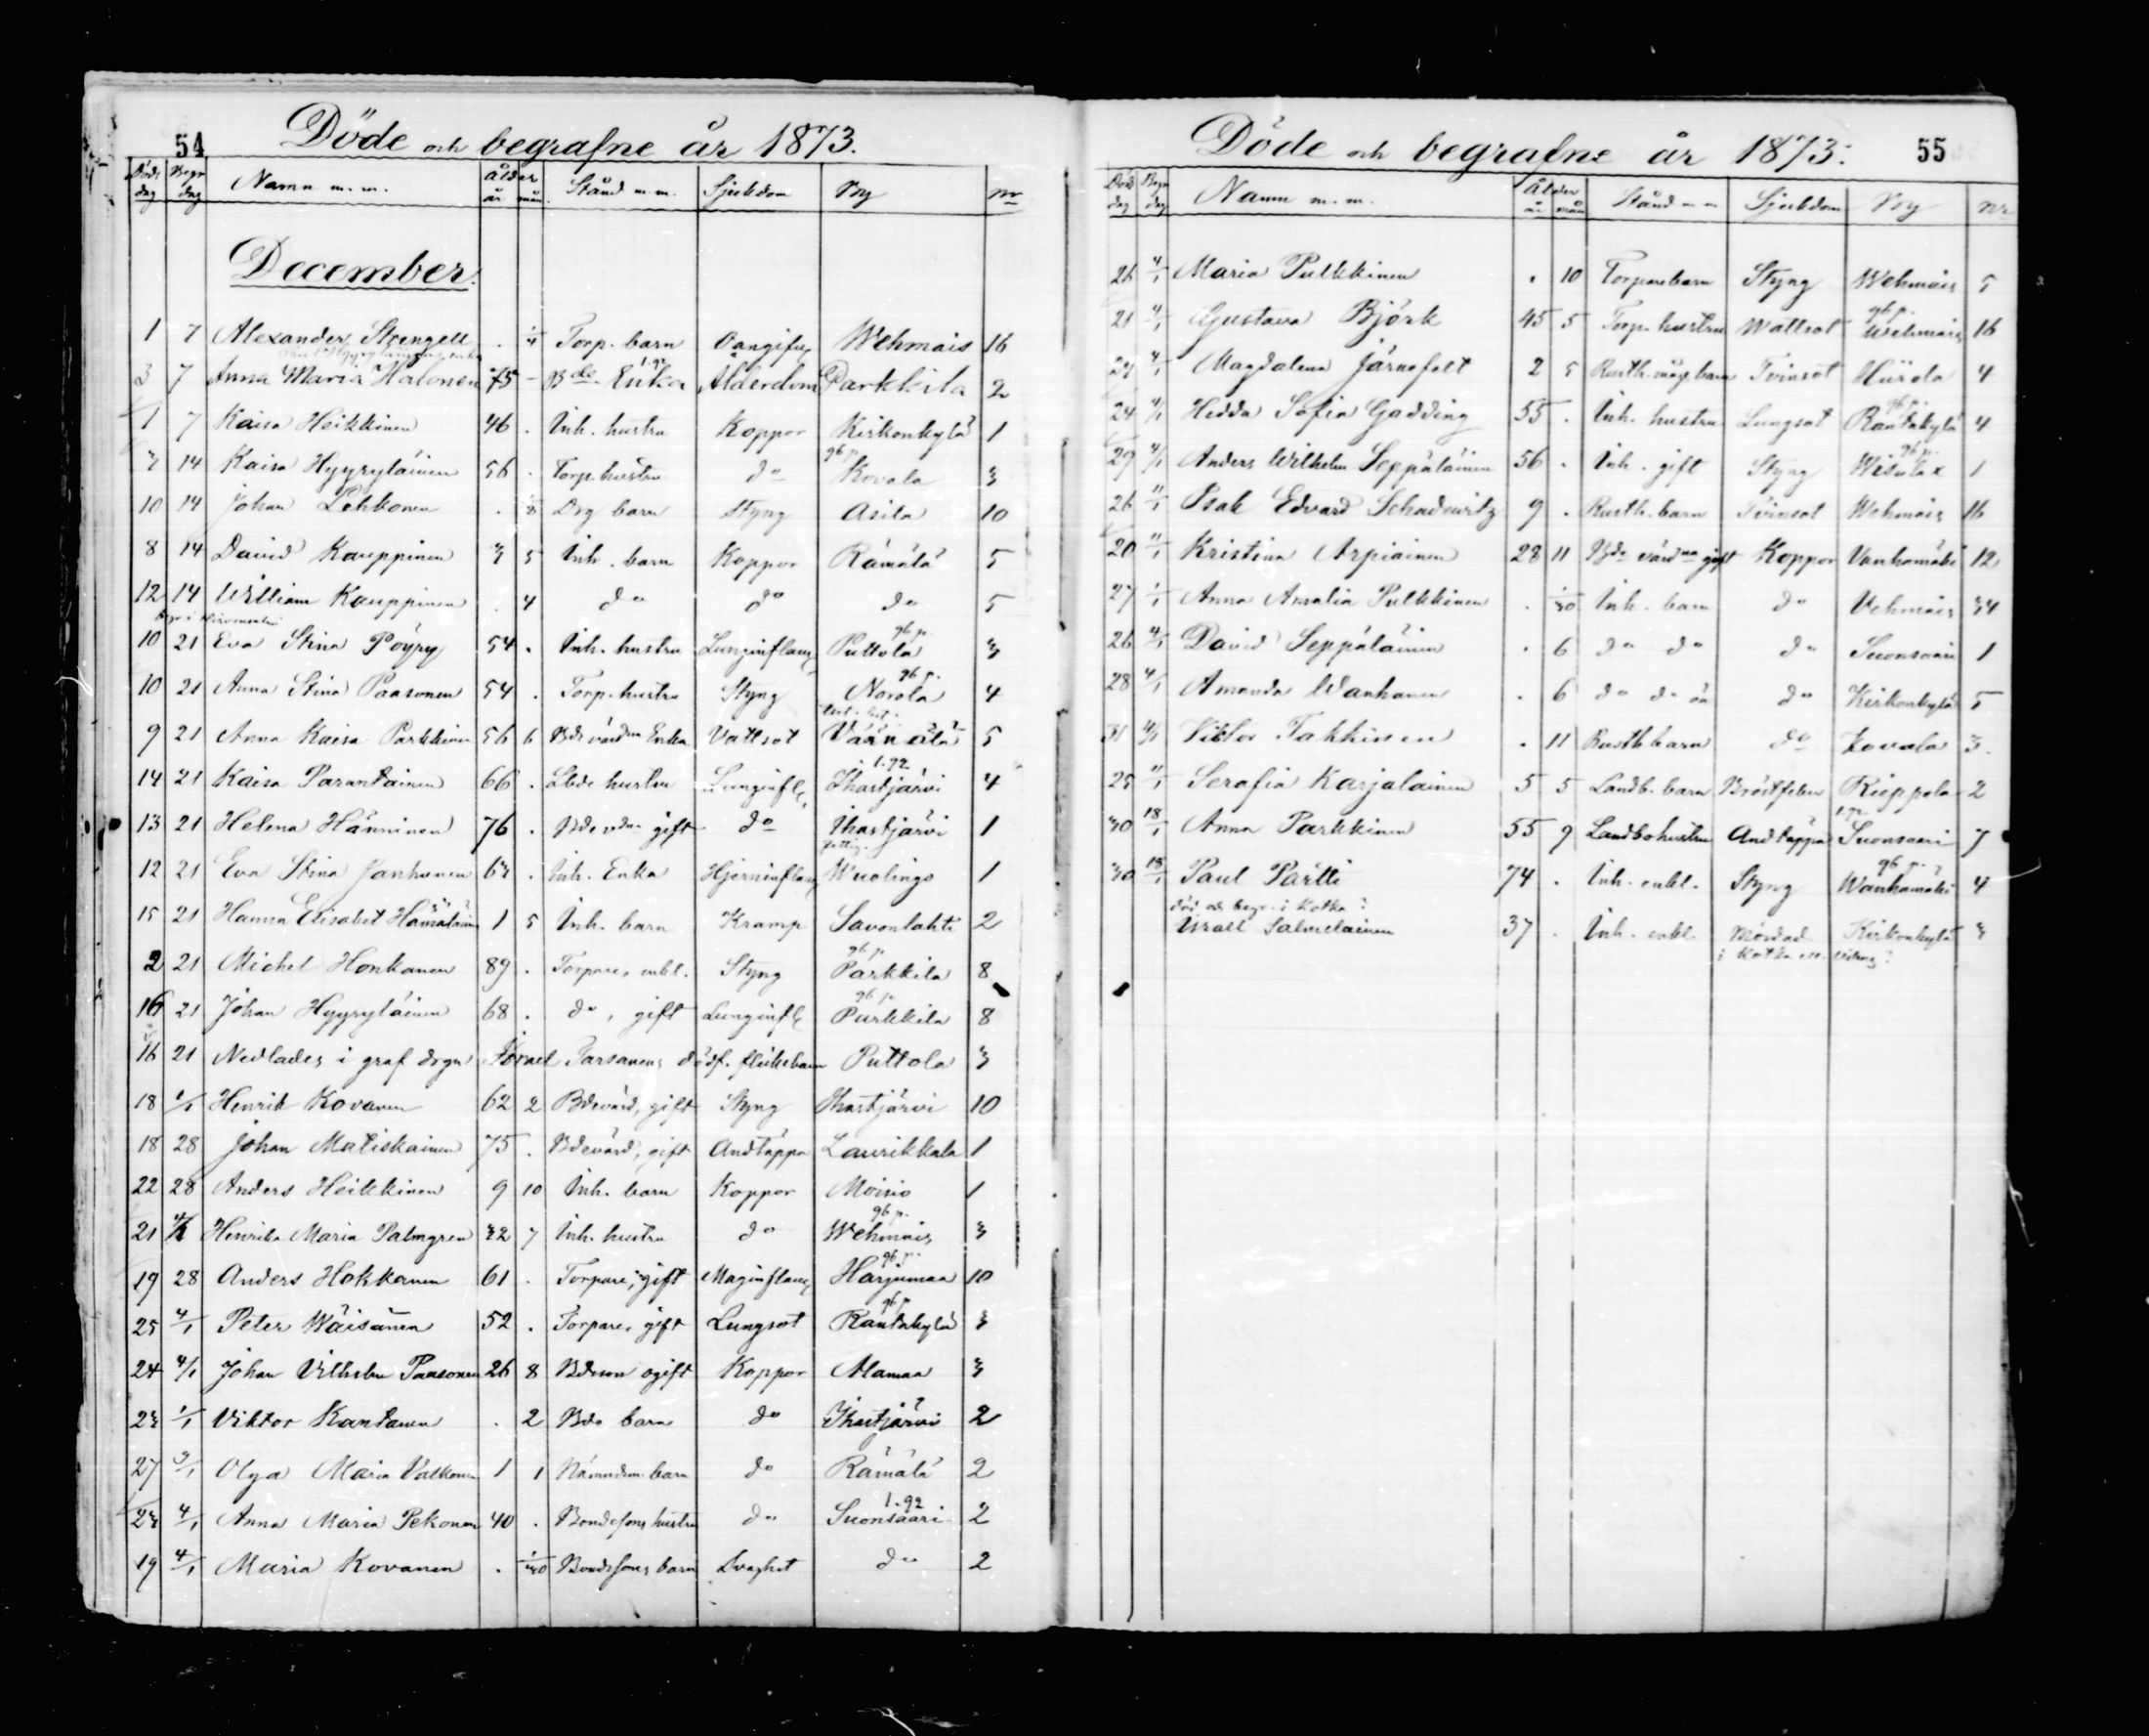 54
Döde och begrafne år 1873.
Död: dag Begr dag Namn m. m. Ålder år mån. Stånd m. m. Sjukdom By nr
December.
1 7 Alexander Strengell . Torp. barn Oangifv. Wehmais 16
3 7 Anna Maria Halonen 75 - Bde Enka Ålderdom Parkkila 2
1 7 Kaisa Heikkinen 46 . Inh. hustru Koppor Kirkonkylä 1
3 14 Kaisa Hyyryläinen 56 . Torp. hustru do Kovala 3
10 14 Johan Lehkonen . Drg barn Styng Asila 10
8 14 David Kauppinen 3 5 Inh. barn Koppor Rämälä 5
12 14 William Kauppinen . 4 do do do 5
10 21 Eva Stina Pöyry 54 . Inh. hustru Lunginflam Puttola 3
10 21 Anna Stina Paasonen 54 . Torp. hustru Styng Norola 4
9 21 Anna Kaisa Parkkinen 56 6 Bde värdna Enka Vattsot Väänälä 5
14 21 Kaisa Parantainen 66 . Lbde hustru Lunginfl. Ihastjärvi 4
13 21 Helena Hänninen 76 . Bde vdna gift do Ihastjärvi 1
12 21 Eva Stina Vanhanen 63 . Inh. Enka Hjerninflam Wuolingo 1
15 21 Hanna Elisabet Hämäläinen 1 5 Inh. barn Kramp Savonlahti 2
2 21 Michel Honkanen 89 . Torpare, enkl. Styng 96 p. Parkkila 8
16 21 Johan Hyyryläinen 68 . do, gift Lunginfl. 96 p. Parkkila 8
16 21 Nedlades i graf drgn Israel Tarsanens dödf. flickebarn Puttola 3
18 1/1 Henrik Kovanen 62 2 Bdevärd, gift Styng Ihastjärvi 10
18 28 Johan Matiskainen 75 . Bdevärd, gift Andtäppa Laurikkala 1
22 28 Anders Heikkinen 9 10 Inh. barn Koppor Moisio 1
21 4/1 Henrika Maria Palmgren 32 7 Inh. hustru do 96 p. Wehmais 3
19 28 Anders Hokkanen 61 . Torpare, gift Maginflam 96 p. Harjumaa 10
25 4/1 Peter Wäisänen 52 . Torpare, gift Lungsot 96 p. Rantakylä 3
24 4/1 Johan Vilhelm Paasonen 26 8 Bdeson ogift Koppor Alamaa 3
23 1/1 Viktor Kantanen . 2 Bde barn do Ihastjärvi 2
27 Olga Maria Valkonen 1 1 Nämndem. barn do Rämälä 2
23 4/1 Anna Maria Pekonen 40 . Bondesons hustru do 1.92 Suonsaari 2
19 4/1 Maria Kovanen . 1/30 Bondesons barn Svaghet do 2
Döde och begrafne år 1873. 55
Död dag Begr dag Namn m. m. Ålder år mån Stånd m m Sjukdom By nr
26 4/1 Maria Pulkkinen . 10 Torparebarn Styng Wehmais 5
21 4/1 Gustava Björk 45 5 Torp. hustru Wattsot 96 p. Wehmais 16
4/1 Magdalena Järnefelt 2 5 Rusth. måg. barn Tvinsot Hiirola 4
24 4/1 Hedda Sofia Gadding 55 . Inh. hustru Lungsot 96 p. Rantakylä 4
29 4/1 Anders Wilhelm Seppäläinen 56 . Inh. gift Styng 96 p. Wisulax 1
26 Isak Edvard Schadewitz 9 . Rusth. barn Tvinsot Wehmais 16
20 Kristina Arpiainen 28 11 Bde värdna gift Koppor Vanhamäki 12
27 1/1 Anna Amalia Pulkkinen . 1/30 Inh. barn do Vehmais 34
26 4/1 David Seppäläinen . 6 do do do Suonsaari 1
28 4/1 Amanda Wanhanen . 6 do do oä do Kirkonkylä 5
31 4/1 Viktor Takkinen . 11 Rusth barn do Kovala 3.
25 Serafia Karjalainen 5 5 Landb. barn Bröstfeber Rieppola 2
30 18/1 Anna Parkkinen 55 9 Landbohustru Andtäppa 1.92 Suonsaari 7
30 18/1 Paul Pärtti 74 . Inh. enkl. Styng 96 p. Wanhamäki 4
död och begr. i Kotka
Israel Salmelainen 37 . Inh. enkl. Mördad Kirkonkylä 3
i Kotka